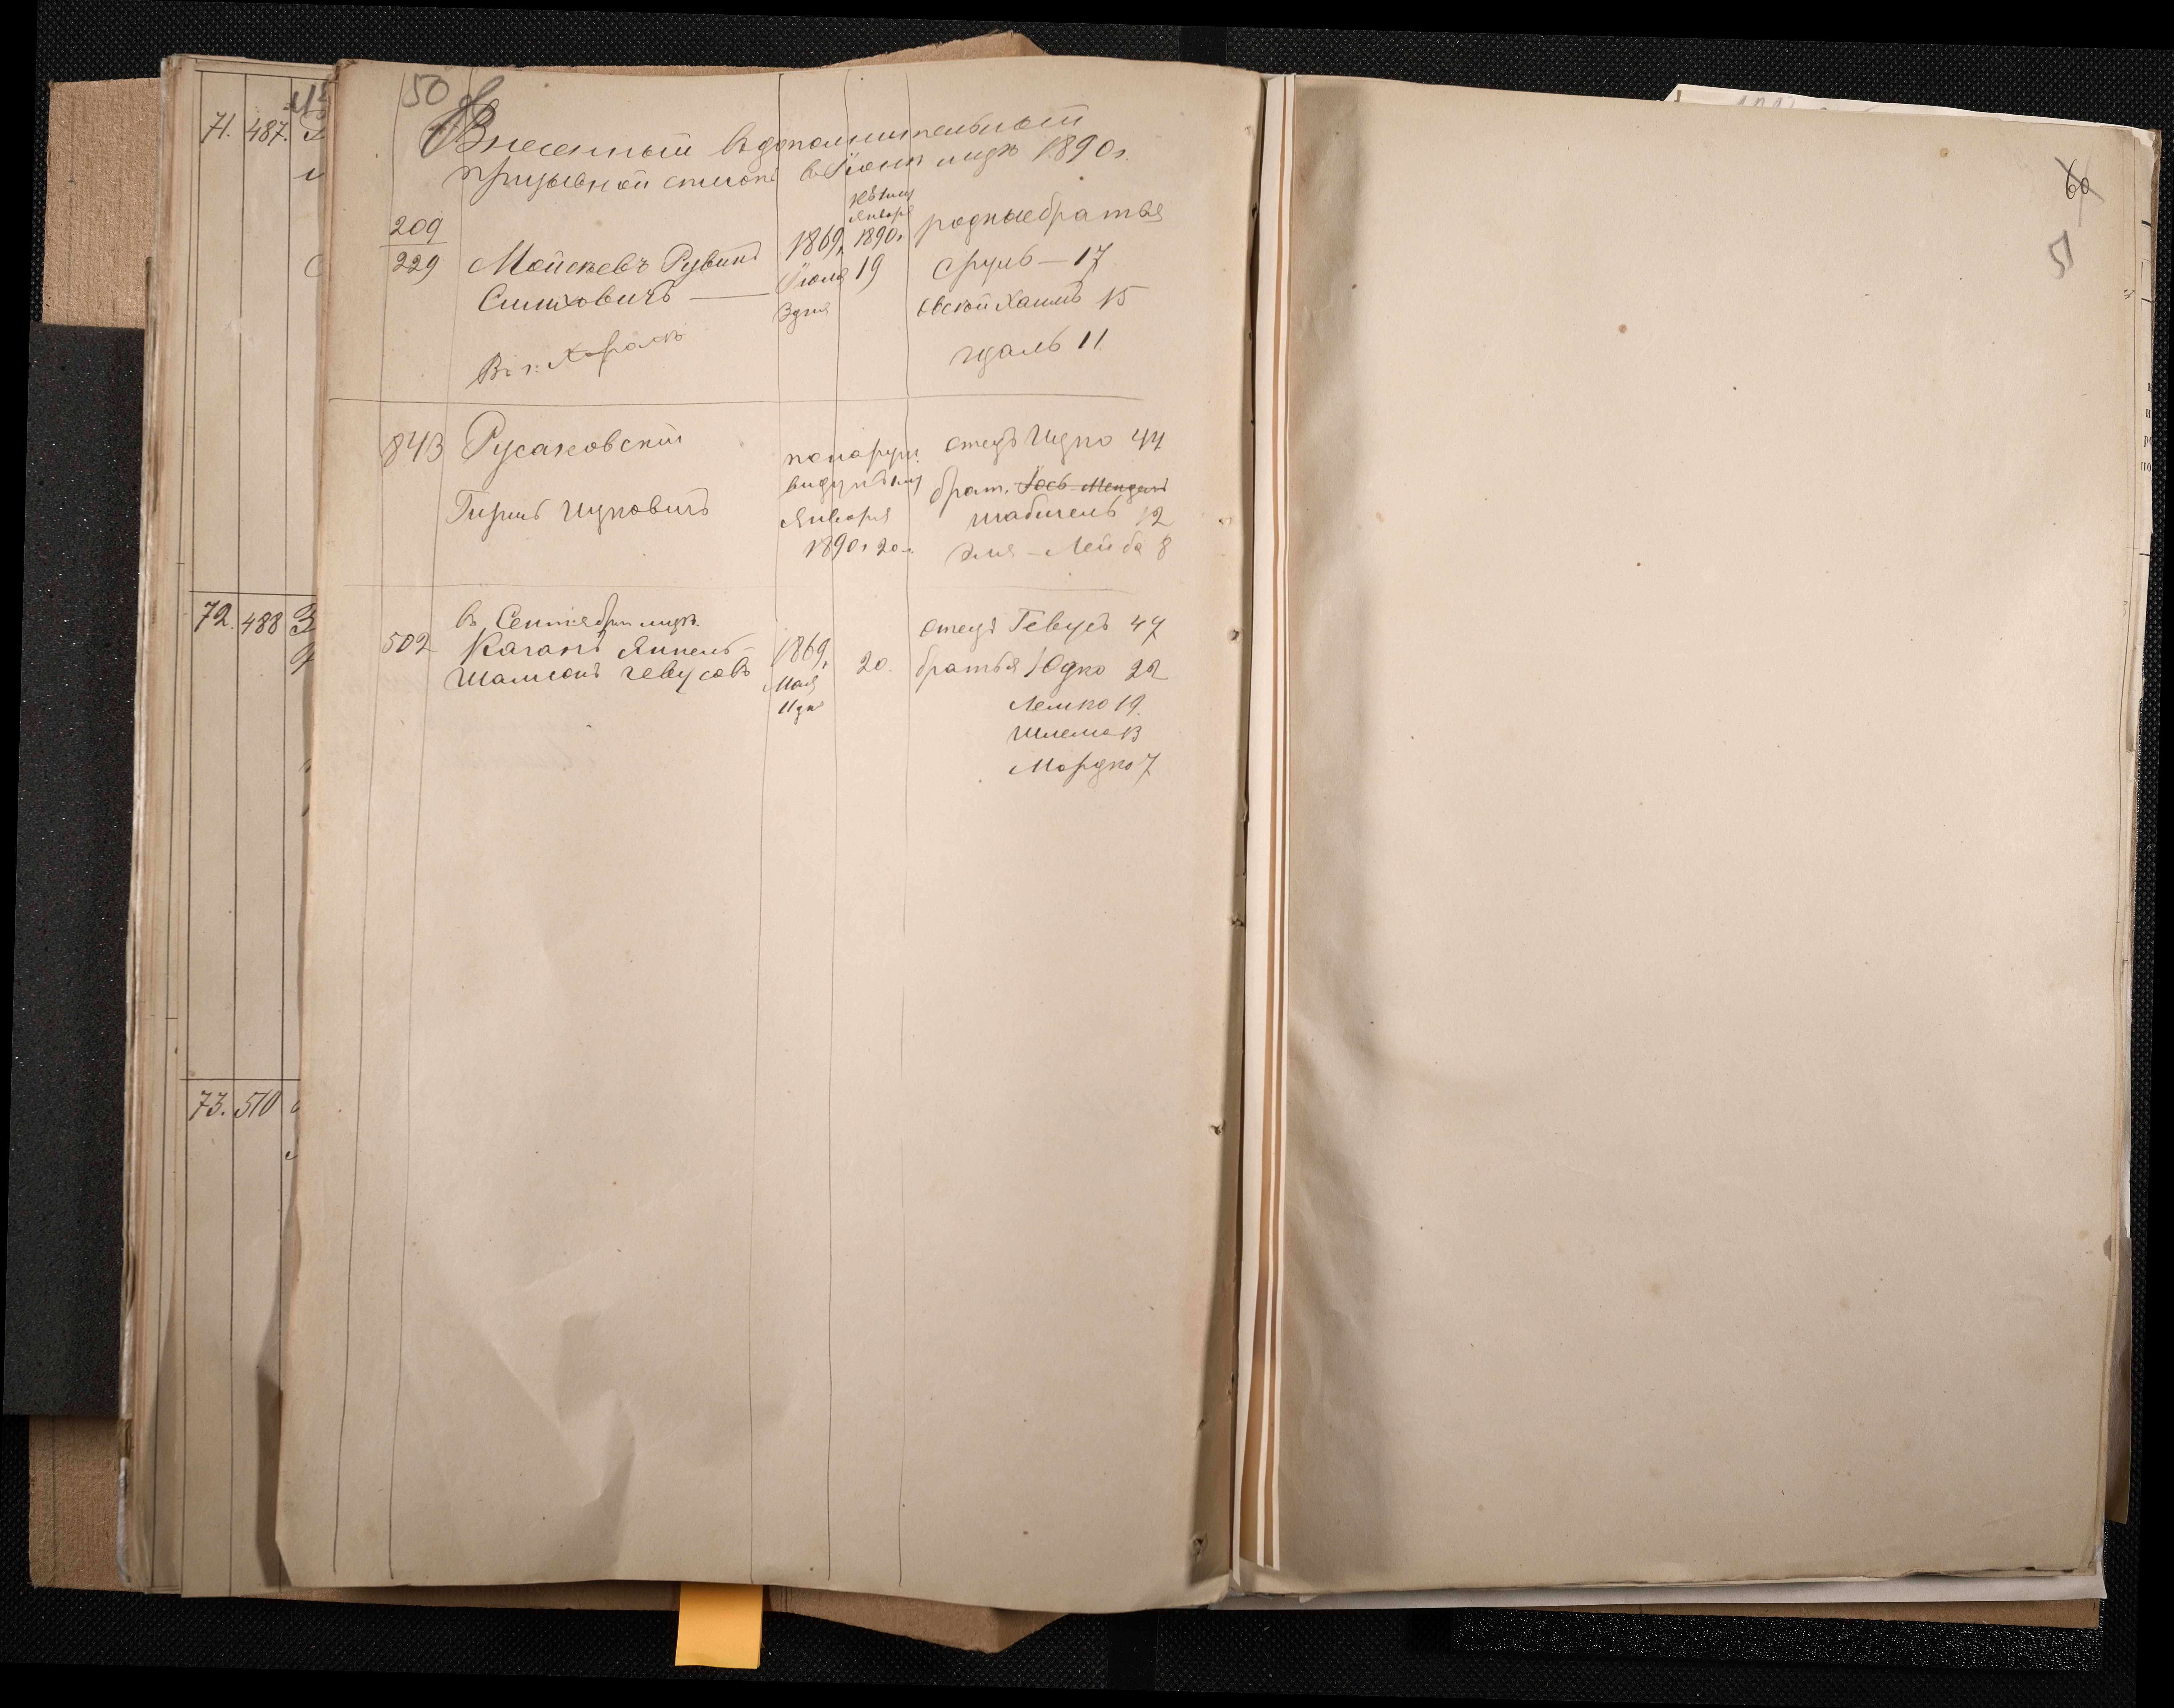 50
Внесенный в дополнительный
призывной список в Іюнь мцѣ 1890г.
209
229
Мойсеевъ Рувинъ
Симховичъ —
В г.
1869г.
Іюля
3 дня
къ 1 му
Января
1890г.
19
родные братья
Сруль — 17
Евсей Хаимъ 15
Гдаль 11
843
Русаковский
Гиршъ Ицковичъ
по наруж.
виду къ 1 му
Января
1890г 20 л.
отецъ Ицко 44
брат. Іось-Мендель
Шабшель 12
Эля-Лейба 8
в Сентябрѣ мцѣ.
502
Каганъ Янкель-
Шамшонъ Гевусовъ
1869г.
Мая
11 дня
20.
отецъ Гевусъ 47
братья Юдко 22
Лемко 19.
Шлема 13
Мордко 7
71. 487.
72. 488
73. 510
60
51